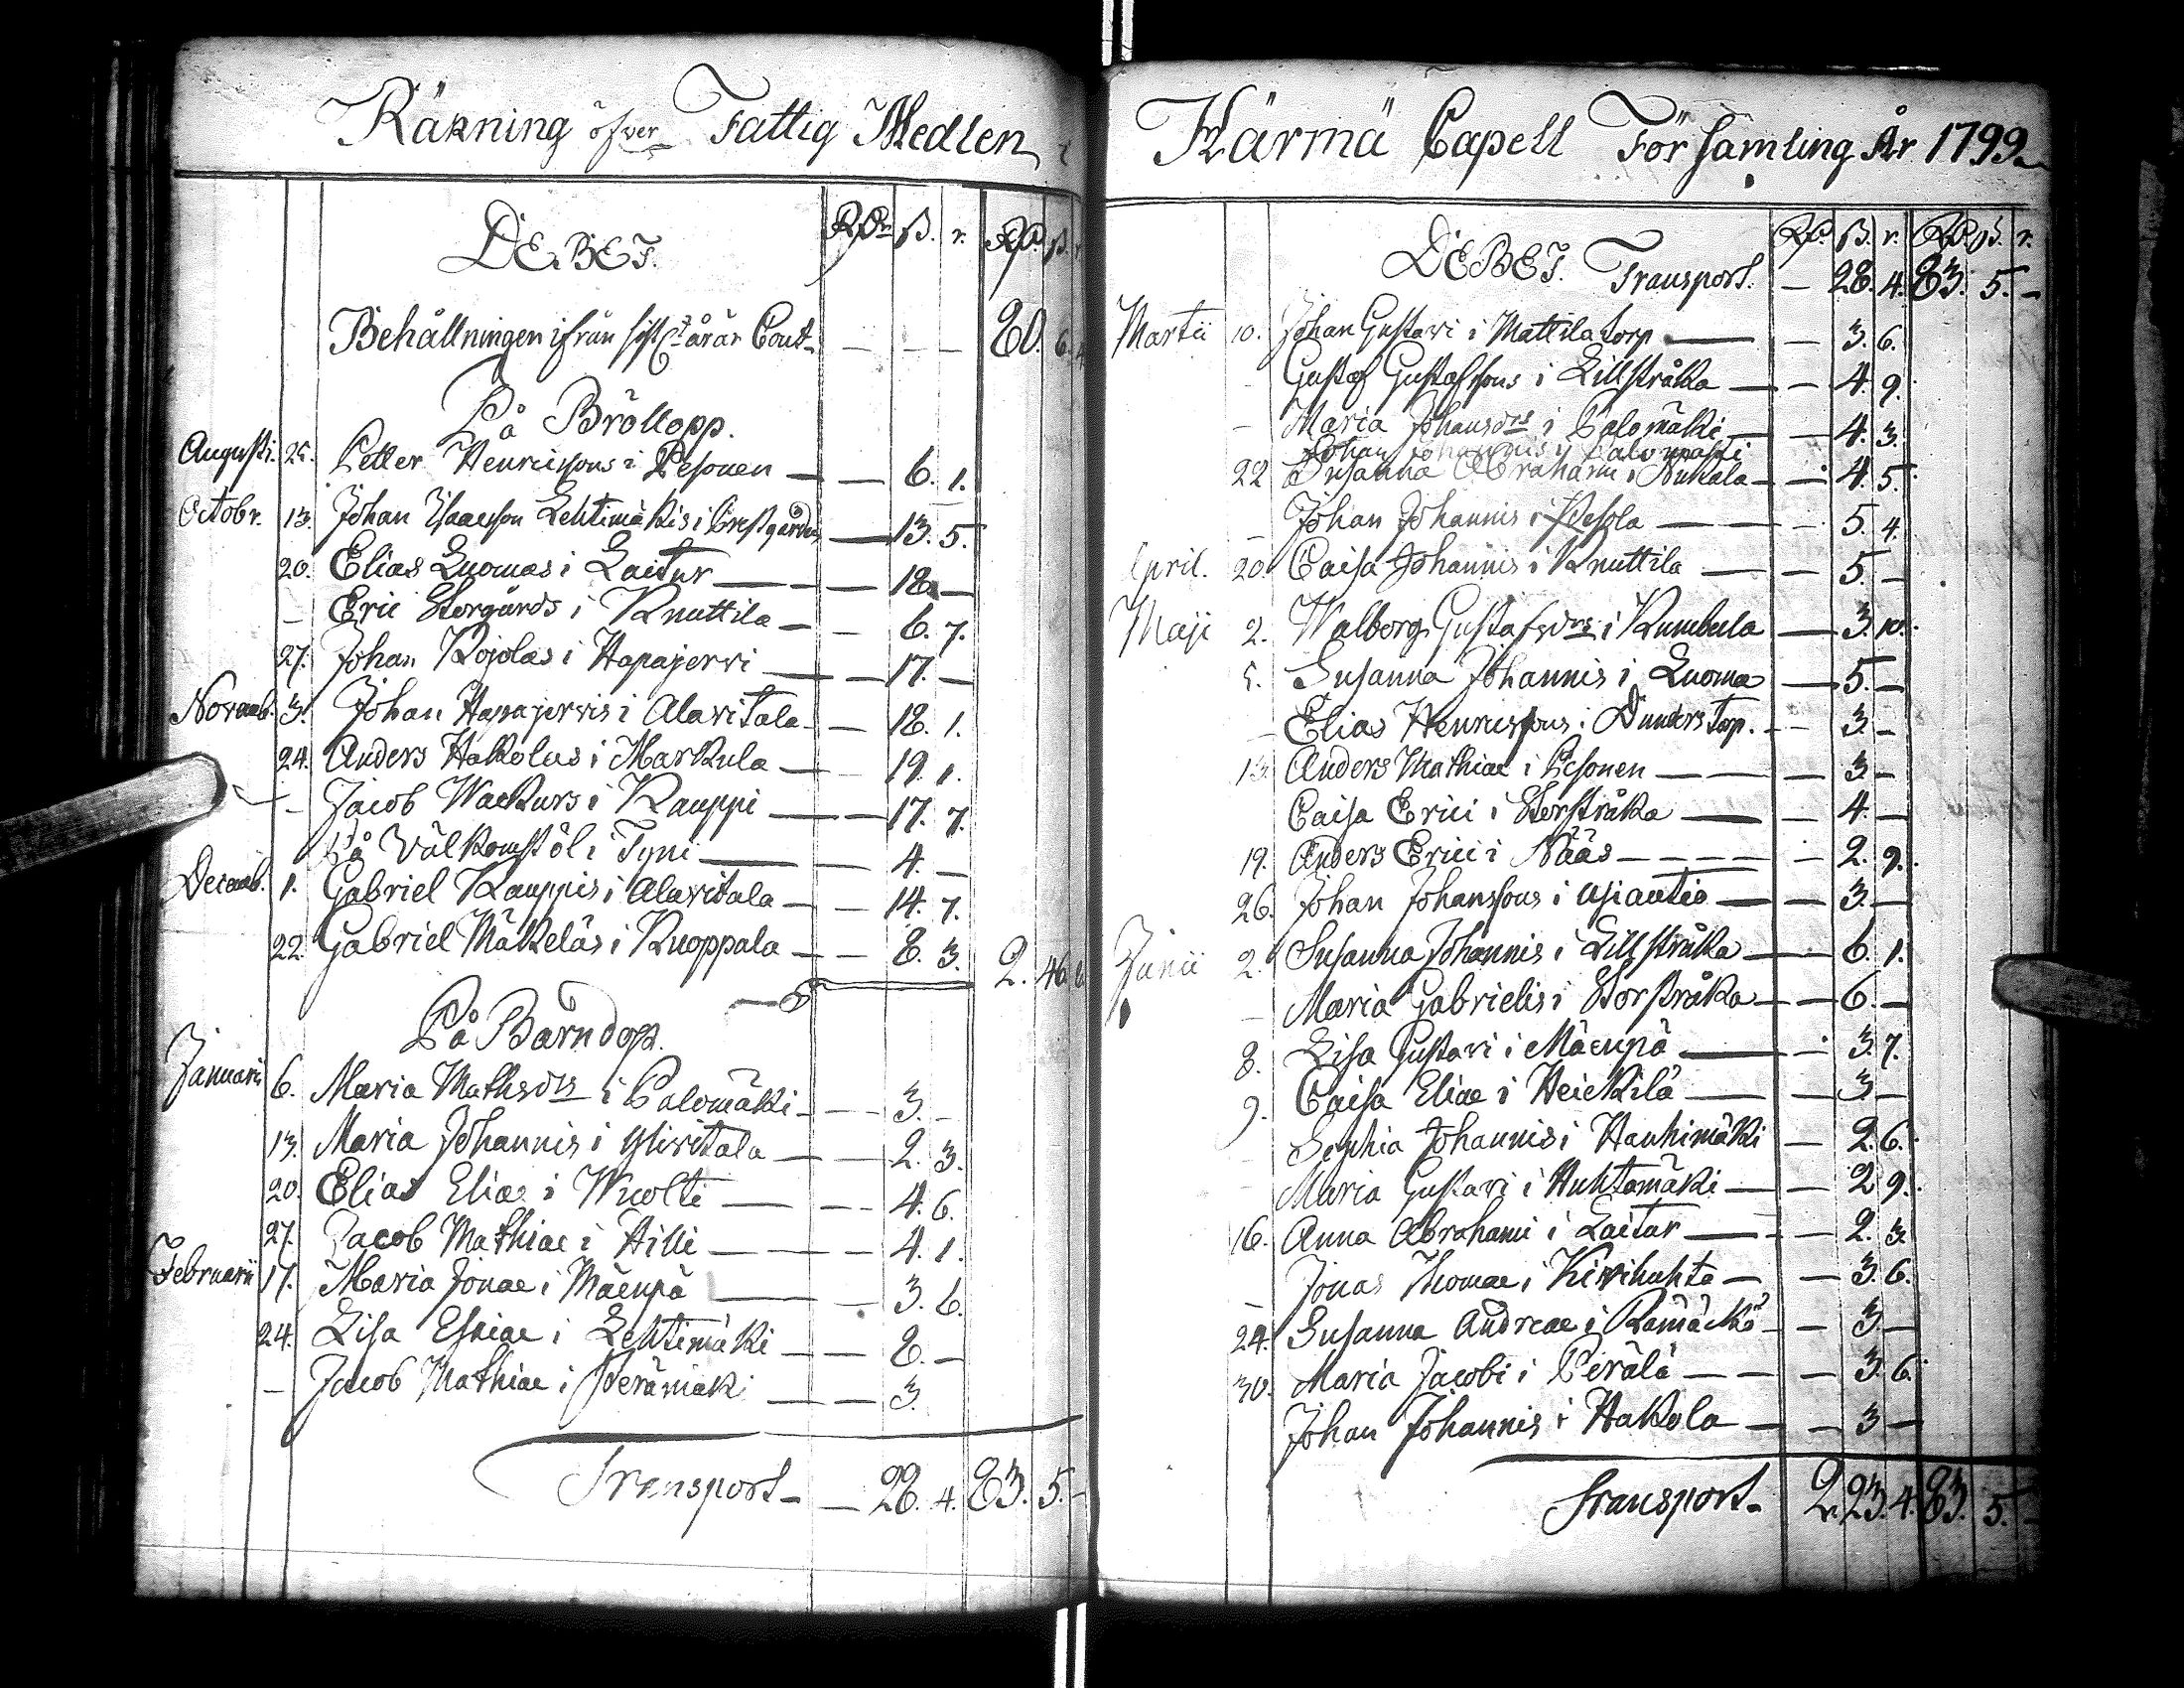 Räkning öfver Fattig Medlen
DEBET. Rdr ß. r. Rdr ß.
Behållningen ifrån sistl. år är Cont. — — — 80. 6.
På Bröllopp.
Augusti. 25. Petter Henricssons i Pesonen — — 6. 1.
Octobr. 13. Johan Isacsson Lehtimäkis i Prestgården — 13. 5.
20. Elias Luomas i Laitur — — 18. —
— Eric Storgårds i Knuttila — — 6. 7.
27. Johan Kojolas i Hapajervi — — 17. —
Novemb. 3. Johan Hapajervis i Alavitala — — 18. 1.
24. Anders Hakolas i Markula — — 19. 1.
— Jacob Wackurs i Kauppi — — 17. 7.
På Välkomstöl i Tyni — — 4. —
Decemb. 1. Gabriel Kauppis i Alavitala — — 14. 7.
22. Gabriel Mäkeläs i Kuoppala — — 8. 3. 2. 46. 6
På Barndop.
Januarii 6. Maria Mathsdrs i Palomäki — — 3. —
13. Maria Johannis i Ylivitala — — 2. 3.
20. Elias Eliae i Wuolti — — 4. 6.
27. Jacob Mathiae i Hilli — — 4. 1.
Februarii 17. Maria Jonae i Mäenpä — — 3. 6.
24. Lisa Esaiae i Lehtimäki — — 8. —
— Jacob Mathiae i Perämäki — — 3.
Transport — — 28. 4. 83. 5. —
Härmä Capell Församling År 1799
DEBET. Rdr. ß. r. Rdr. ß. r.
Transport. — 28. 4. 83. 5. —
Martii 10. Johan Gustavi i Mattila torp — — 3. 6.
— Gustaf Gustafssons i Lillstråka — — 4. 9.
— Maria Johansdrs i Palomäki — — 4. 3.
Johan Johannis i Palomäki
22 Susanna Abrahami i Nukala — — 4. 5.
— Johan Johannis i Pesola — — 5. 4.
April. 20. Caisa Johannis i Knuttila — — 5. —
Maji 2. Walborg Gustafsdrs i Kumbula — 3. 10.
5. Susanna Johannis i Luoma — 5. —
— Elias Henricssons i Dunders torp. — — 3. —
13. Anders Mathiae i Pesonen — — 3 —
Caisa Erici i Storstråka — — 4. —
19. Anders Erici i Nääs — — 2. 9.
26. Johan Johanssons i Ujiautio — — 3. —
Junii 2. Susanna Johannis i Lillstråka — — 6. 1.
— Maria Gabrielis i Storstråka — — 6. —
8. Lisa Gustavi i Mäenpä — — 3. 7.
9. Caisa Eliae i Heickilä — — 3. —
— Sophia Johannis i Hanhimäki — 2. 6.
— Maria Gustavi i Huhtamäki — — 2 9.
16. Anna Abrahami i Laitur — — 2. 3
— Jonas Thomae i Kivihuhta — — 3. 6.
24. Susanna Andreae i Rämäckö — — 3. —
30. Maria Jacobi i Perälä — — 3. 6.
Johan Johannis i Hakola — — 3 —
Transport — 2. 23. 4. 83. 5. —